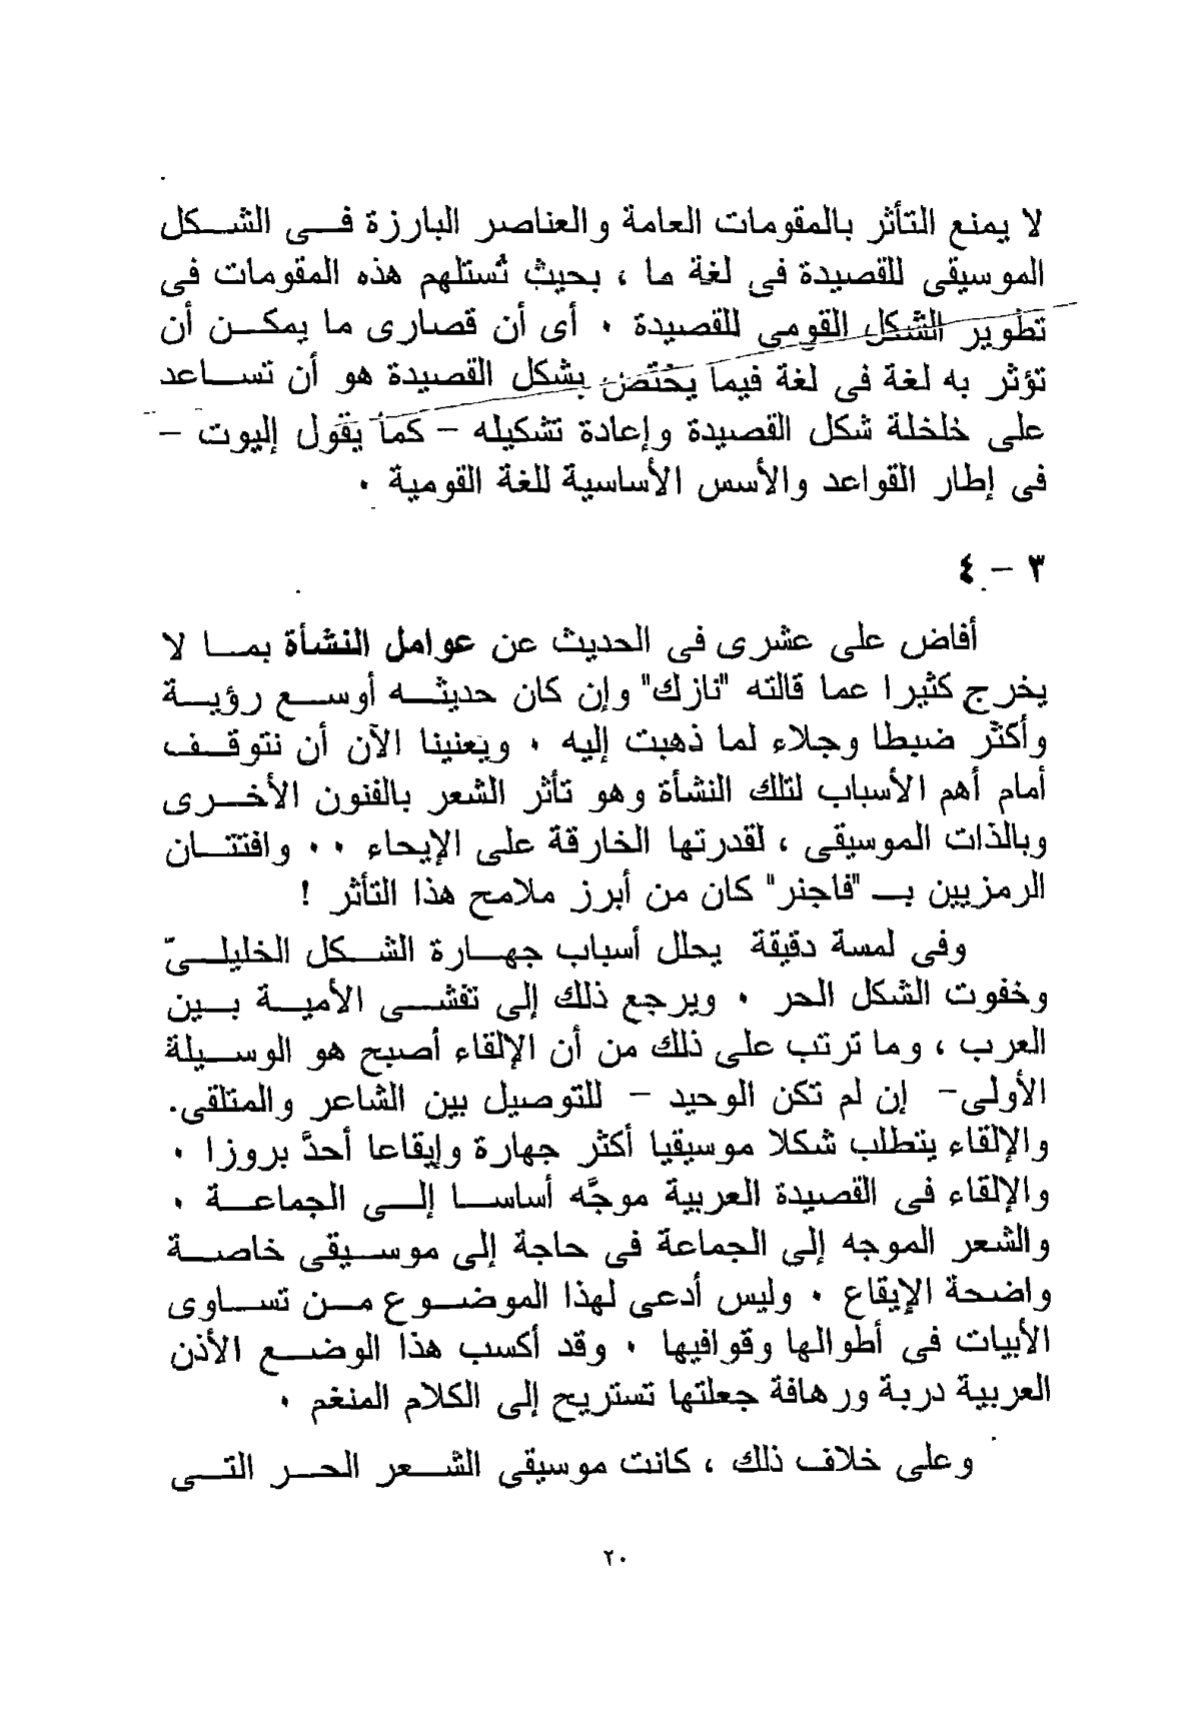 لا يمنع التأثر بالمقومات العامة والعناصر البارزة فى الشكل
الموسيقى للقصيدة فى لغة ما ، بحيث تُستلهم هذه المقومات فى
تطوير الشكل القومى للقصيدة . أى أن قصارى ما يمكن أن
تؤثر به لغة فى لغة فيما يختص بشكل القصيدة هو أن تساعد
على خلخلة شكل القصيدة وإعادة تشكيله – كما يقول إليوت –
فى إطار القواعد والأسس الأساسية للغة القومية .
٣ – ٤
أفاض على عشرى فى الحديث عن عوامل النشأة بما لا
يخرج كثيرا عما قالته "نازك" وإن كان حديثه أوسع رؤية
وأكثر ضبطا وجلاء لما ذهبت إليه . ويعنينا الآن أن نتوقف
أمام أهم الأسباب لتلك النشأة وهو تأثر الشعر بالفنون الأخرى
وبالذات الموسيقى ، لقدرتها الخارقة على الإيحاء . . وافتتان
الرمزيين بـ "فاجنر" كان من أبرز ملامح هذا التأثر !
وفى لمسة دقيقة يحلل أسباب جهارة الشكل الخليلىّ
وخفوت الشكل الحر . ويرجع ذلك إلى تفشى الأمية بين
العرب ، وما ترتب على ذلك من أن الإلقاء أصبح هو الوسيلة
الأولى– إن لم تكن الوحيد – للتوصيل بين الشاعر والمتلقى.
والإلقاء يتطلب شكلا موسيقيا أكثر جهارة وإيقاعا أحدَّ بروزا .
والإلقاء فى القصيدة العربية موجَّه أساسا إلى الجماعة .
والشعر الموجه إلى الجماعة فى حاجة إلى موسيقى خاصة
واضحة الإيقاع . وليس أدعى لهذا الموضوع من تساوى
الأبيات فى أطوالها وقوافيها . وقد أكسب هذا الوضع الأذن
العربية دربة ورهافة جعلتها تستريح إلى الكلام المنغم .
وعلى خلاف ذلك ، كانت موسيقى الشعر الحر التى
٢٠